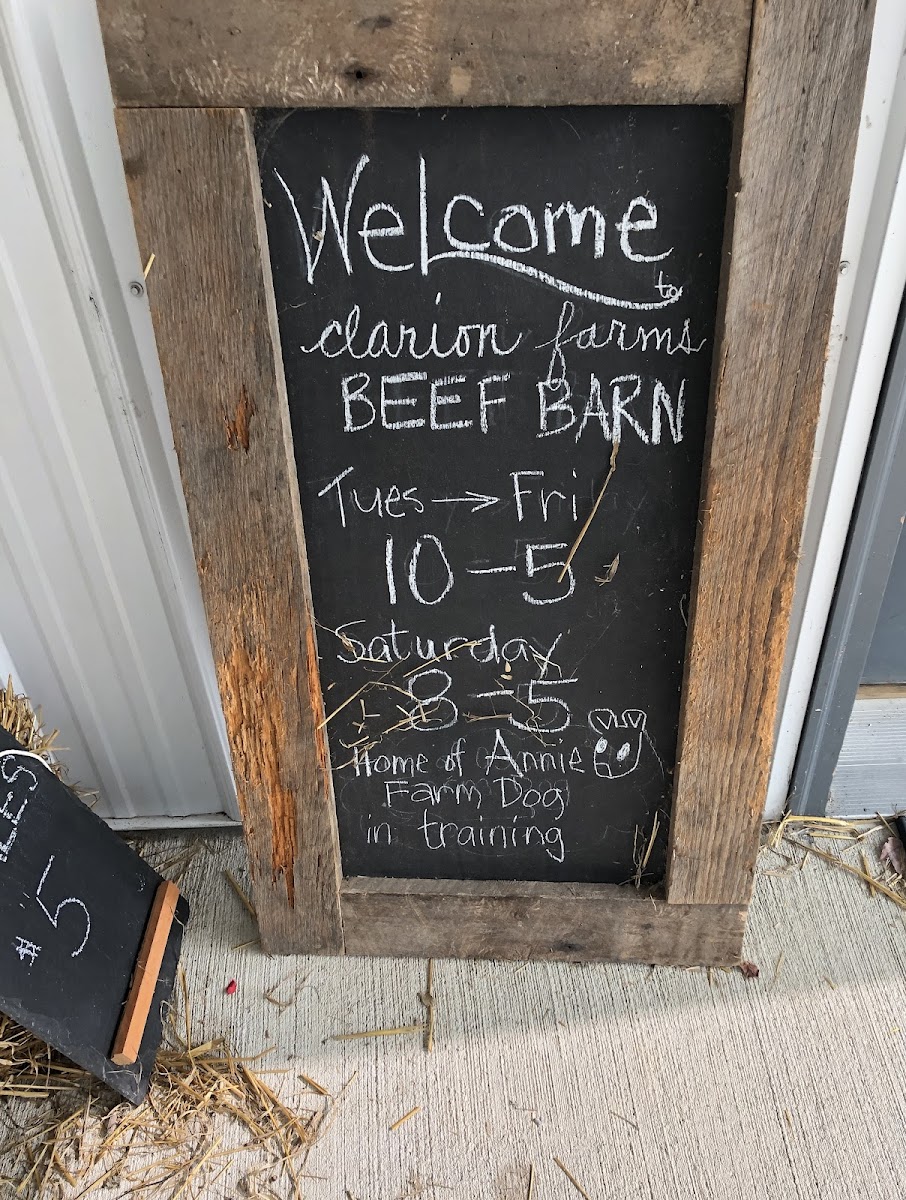 Welcome
to
clarion farms
BEEF BARN
Tues → Fri
10 - 5
Saturday
8 - 5
Home of Annie
Farm Dog
in training
$5